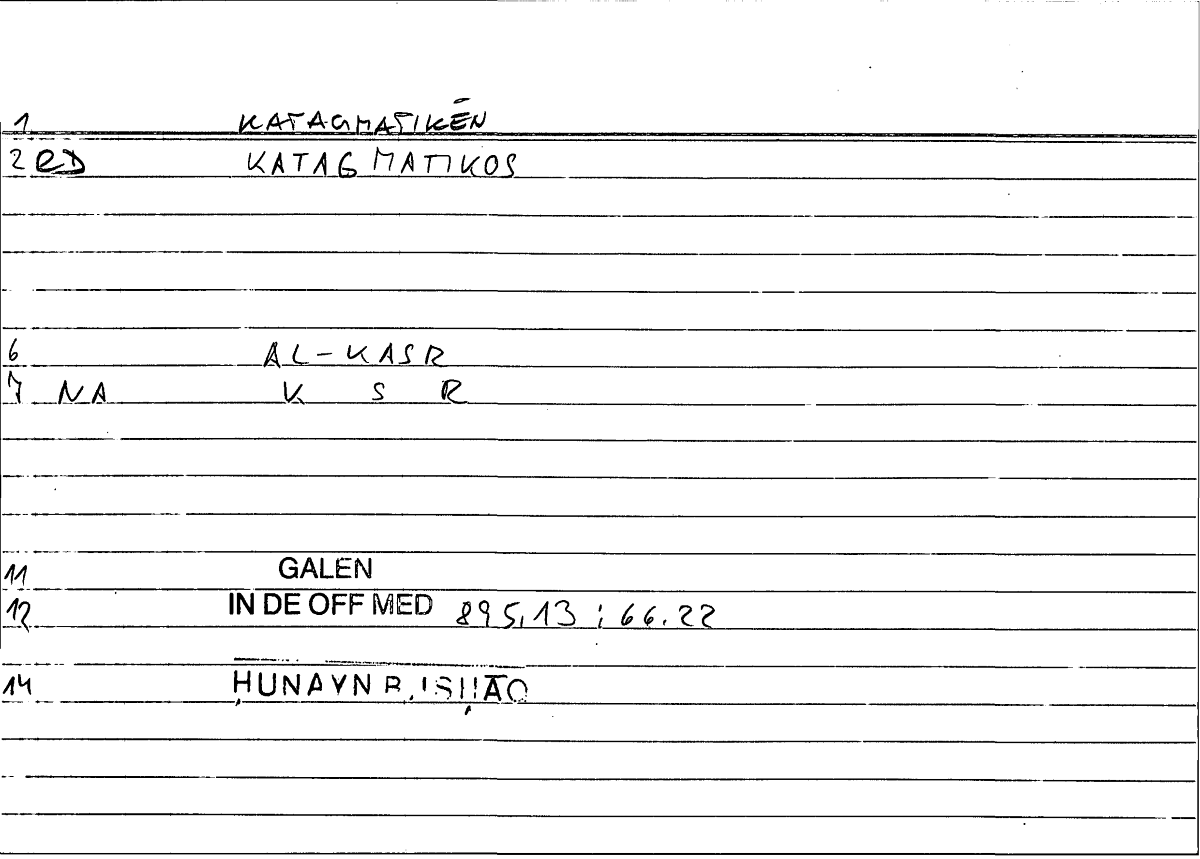 1 KATAGMATIKĒN
2 eD KATAGMATIKOS
6 AL-KASR
7 NA K S R
11 GALEN
12 IN DE OFF MED 895,13 ; 66.22
14 ḤUNAYN B. ISḤĀQ